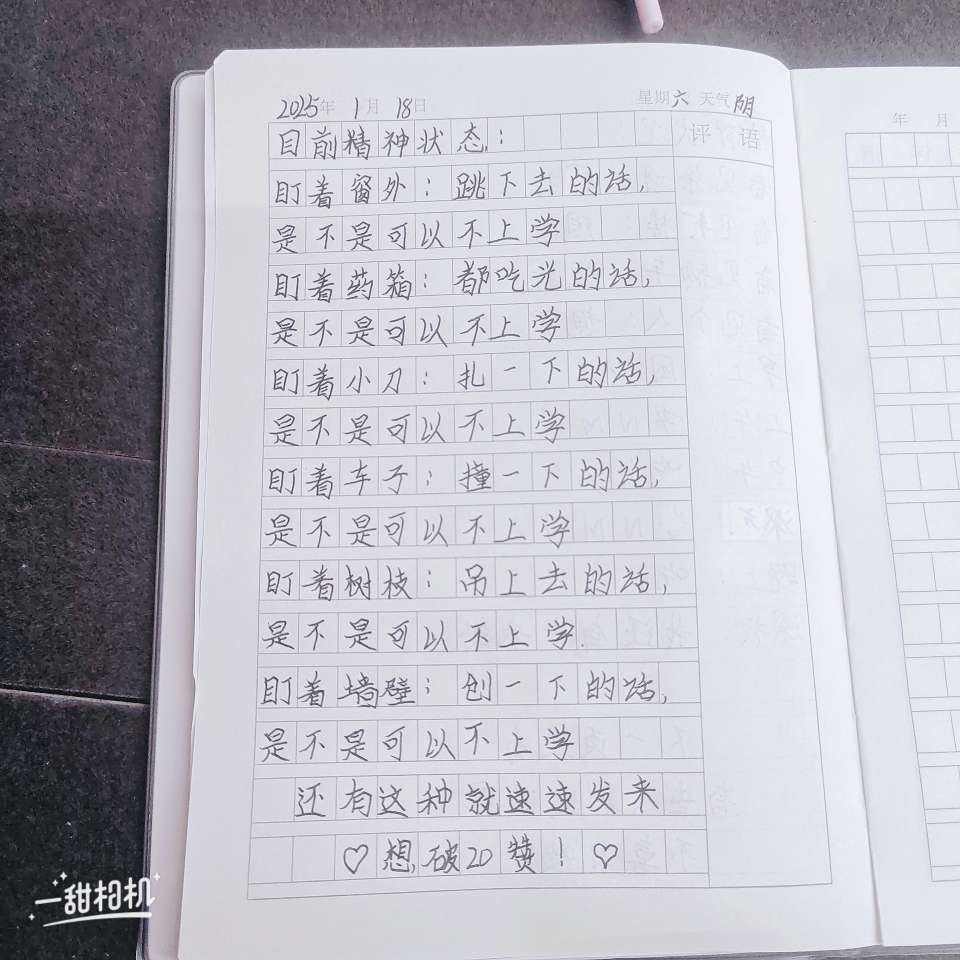 2025年 1月 18日 星期六 天气阴
评语
目前精神状态：
盯着窗外：跳下去的话，
是不是可以不上学
盯着药箱：都吃光的话，
是不是可以不上学
盯着小刀：扎一下的话，
是不是可以不上学
盯着车子：撞一下的话，
是不是可以不上学
盯着树枝：吊上去的话，
是不是可以不上学.
盯着墙壁：创一下的话，
是不是可以不上学
还有这种就速速发来
♡想,破20赞！♡
年 月
一甜相机